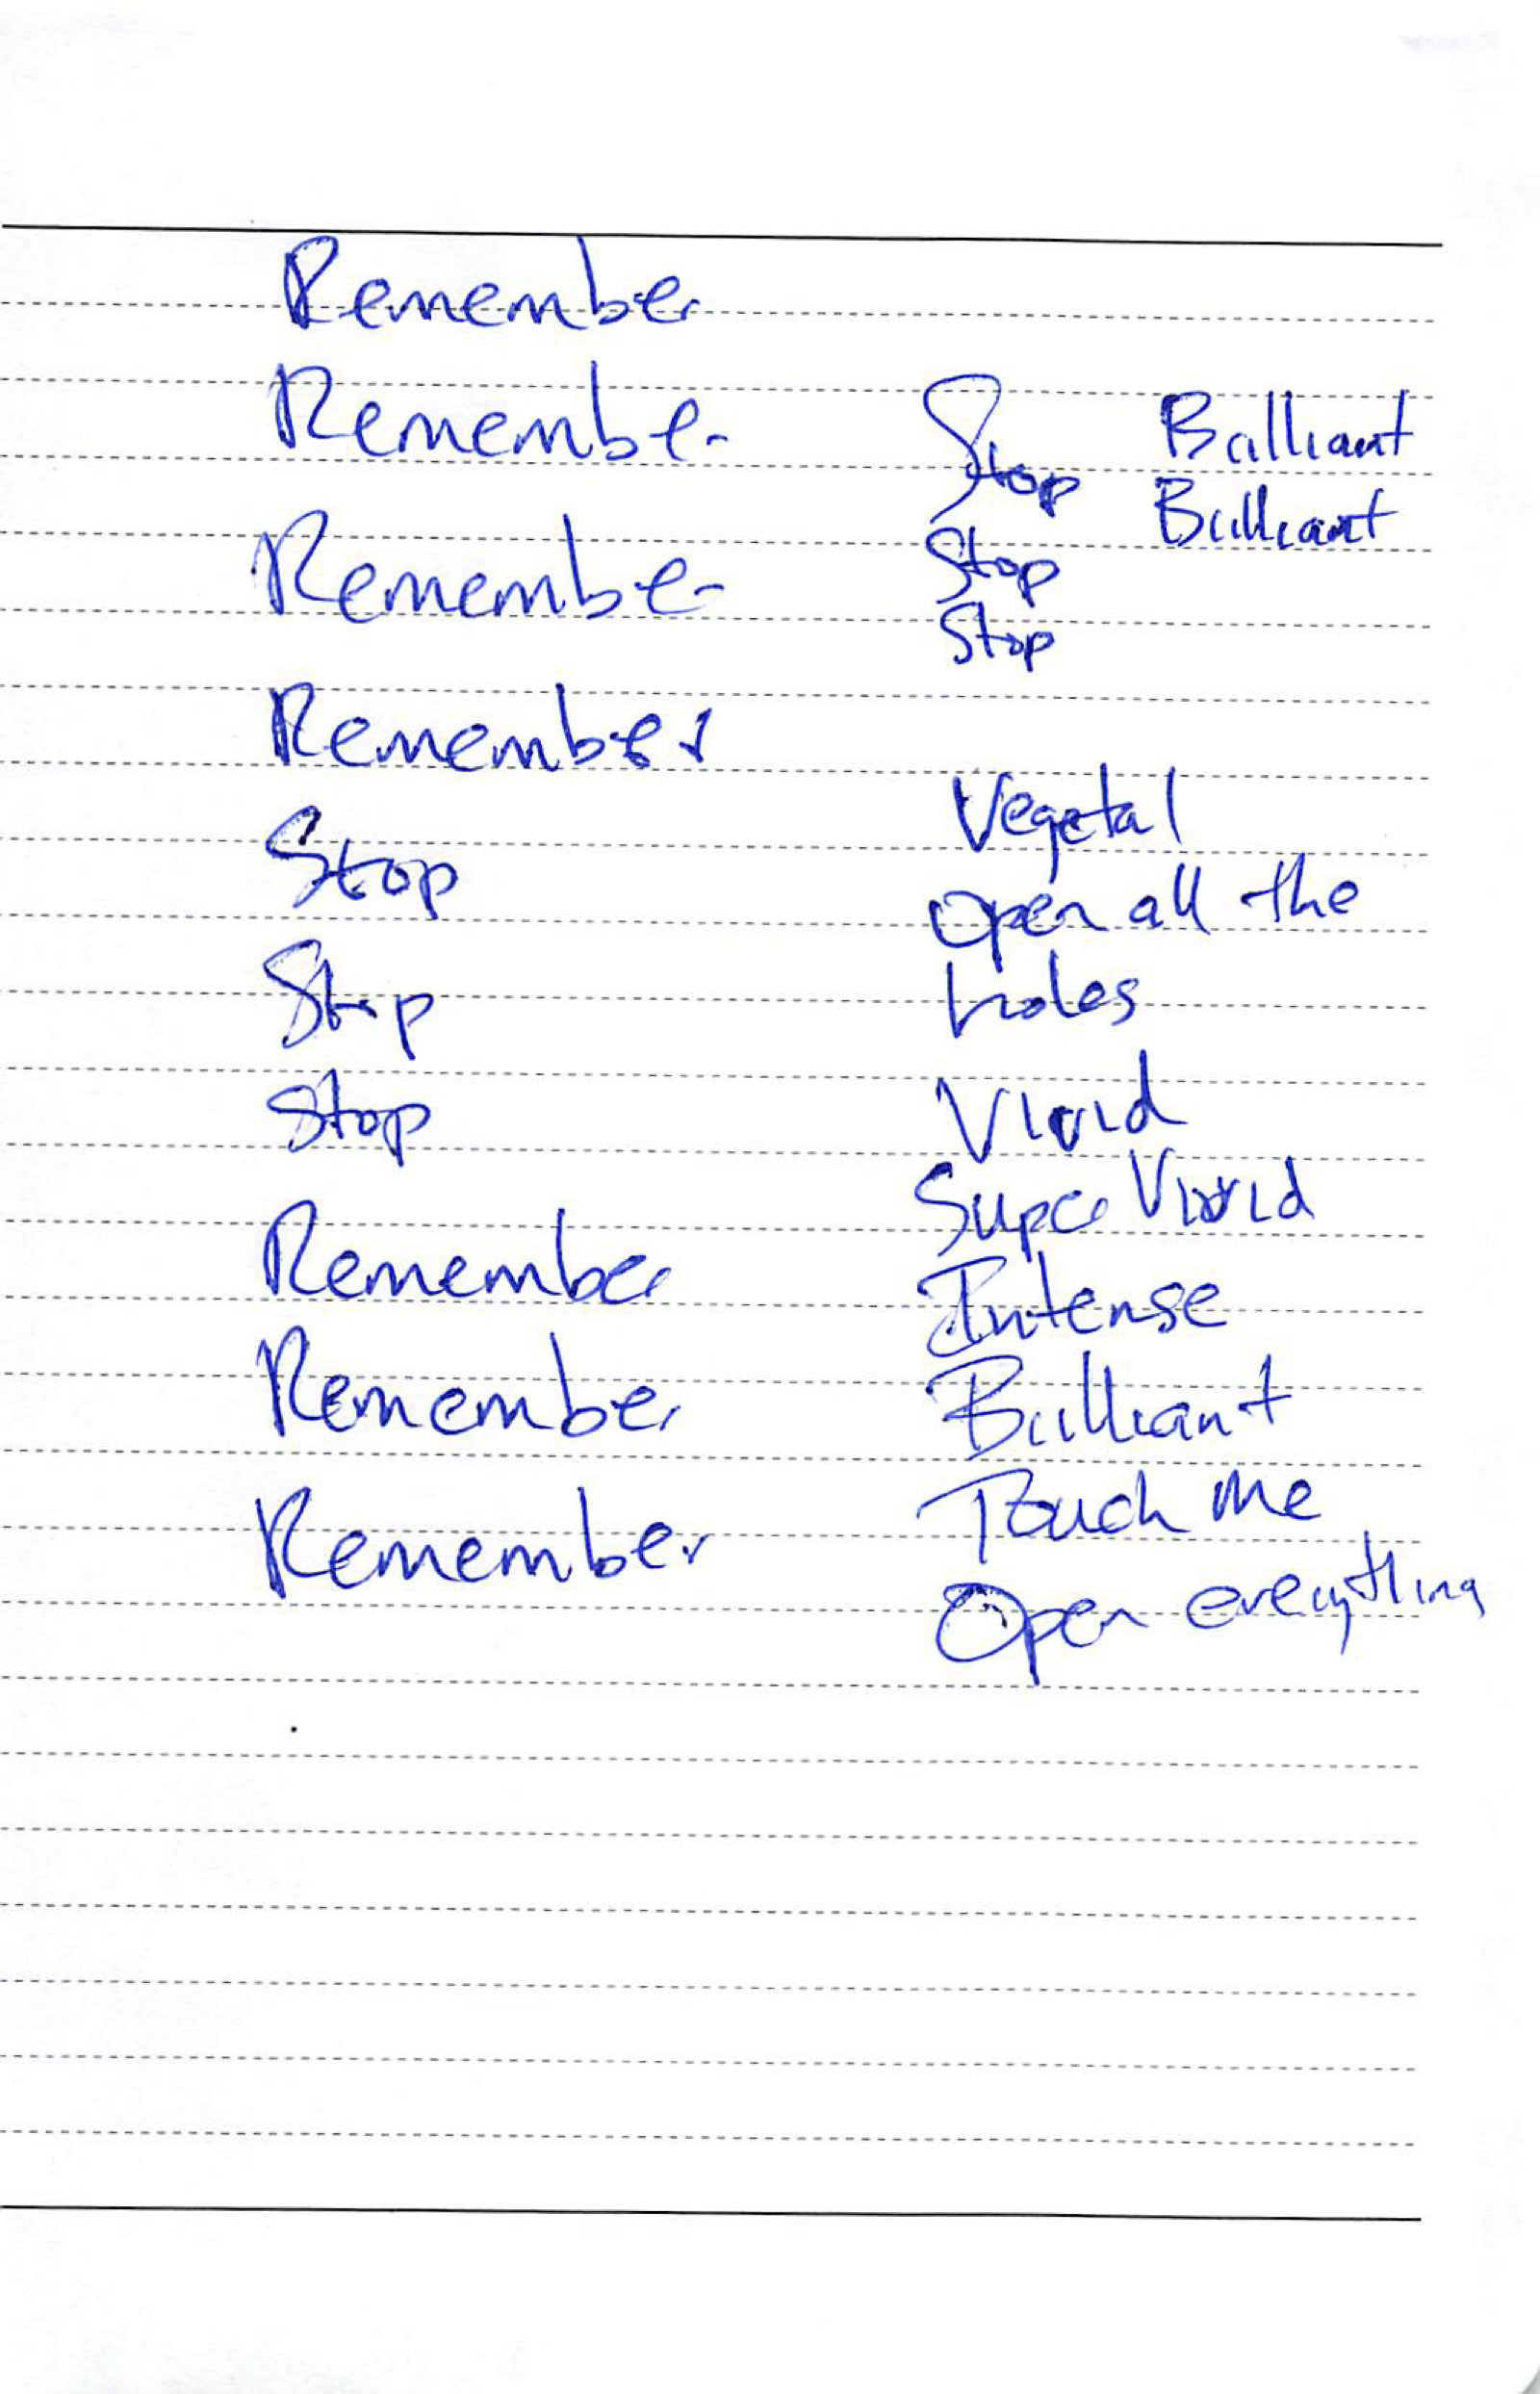 Remember
Remember
Remember
Remember
Stop
Stop
Stop
Remember
Remember
Remember
Stop
Stop
Stop
Brilliant
Brilliant
Vegetal
Open all the
holes
Vivid
Super Vivid
Intense
Brilliant
Touch me
Open everything